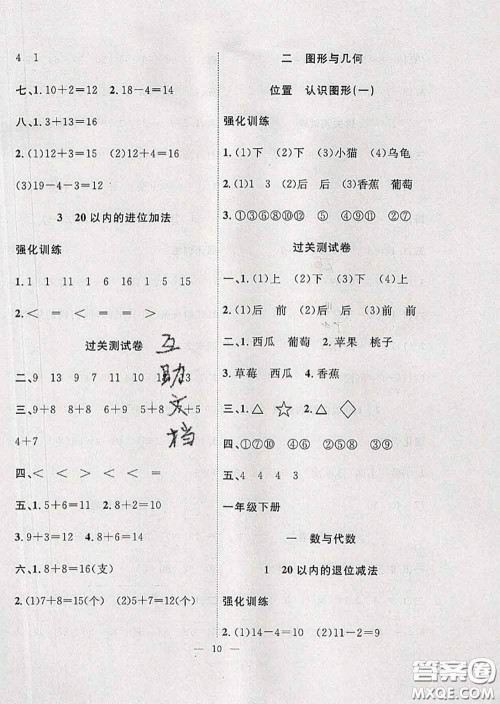 4　1
七、1.10+2=12　2.18-4=14
八、1.3+13=16
2.(1)6+6=12　(2)12+4=16
(3)19-4-3=12
3　20以内的进位加法
强化训练
1.1　1　11　1　6　1　5　15
2.＜　＝　＜　＝　＝　＞
过关测试卷
二、9　13　9　7　11　10　13　13
三、9+8　8+6　6+9　5+8　9+5
4+7
四、＜　＞　＜　＜　＜　＝
五、1.5+6=11　2.8+2=10
3.9+3=12　4.8+9=17
六、1.8+8=16(支)
2.(1)7+8=15(个)　(2)5+7=12(个)
互助文档
二　图形与几何
位置　认识图形(一)
强化训练
1.(1)下　(2)下　(3)小猫　(4)乌龟
2.(1)后　前　(2)后　后　(3)香蕉　葡萄
3.①③⑥⑧⑩⑫　⑤⑪　④⑨　②⑦
过关测试卷
一、1.(1)上　(2)下　(3)下　(4)上
2.(1)后　前　(2)后　前　前　后
二、1.西瓜　葡萄　2.苹果　桃子
3.草莓　西瓜　4.香蕉
三、△　☆　△　◇
四、①⑦⑩　⑤⑨　④⑥　②③⑧
五、4　4　4　3
一年级下册
一　数与代数
1　20以内的退位减法
强化训练
2.(1)14-4=10　(2)11-2=9
10
答案圈
MXQE.COM